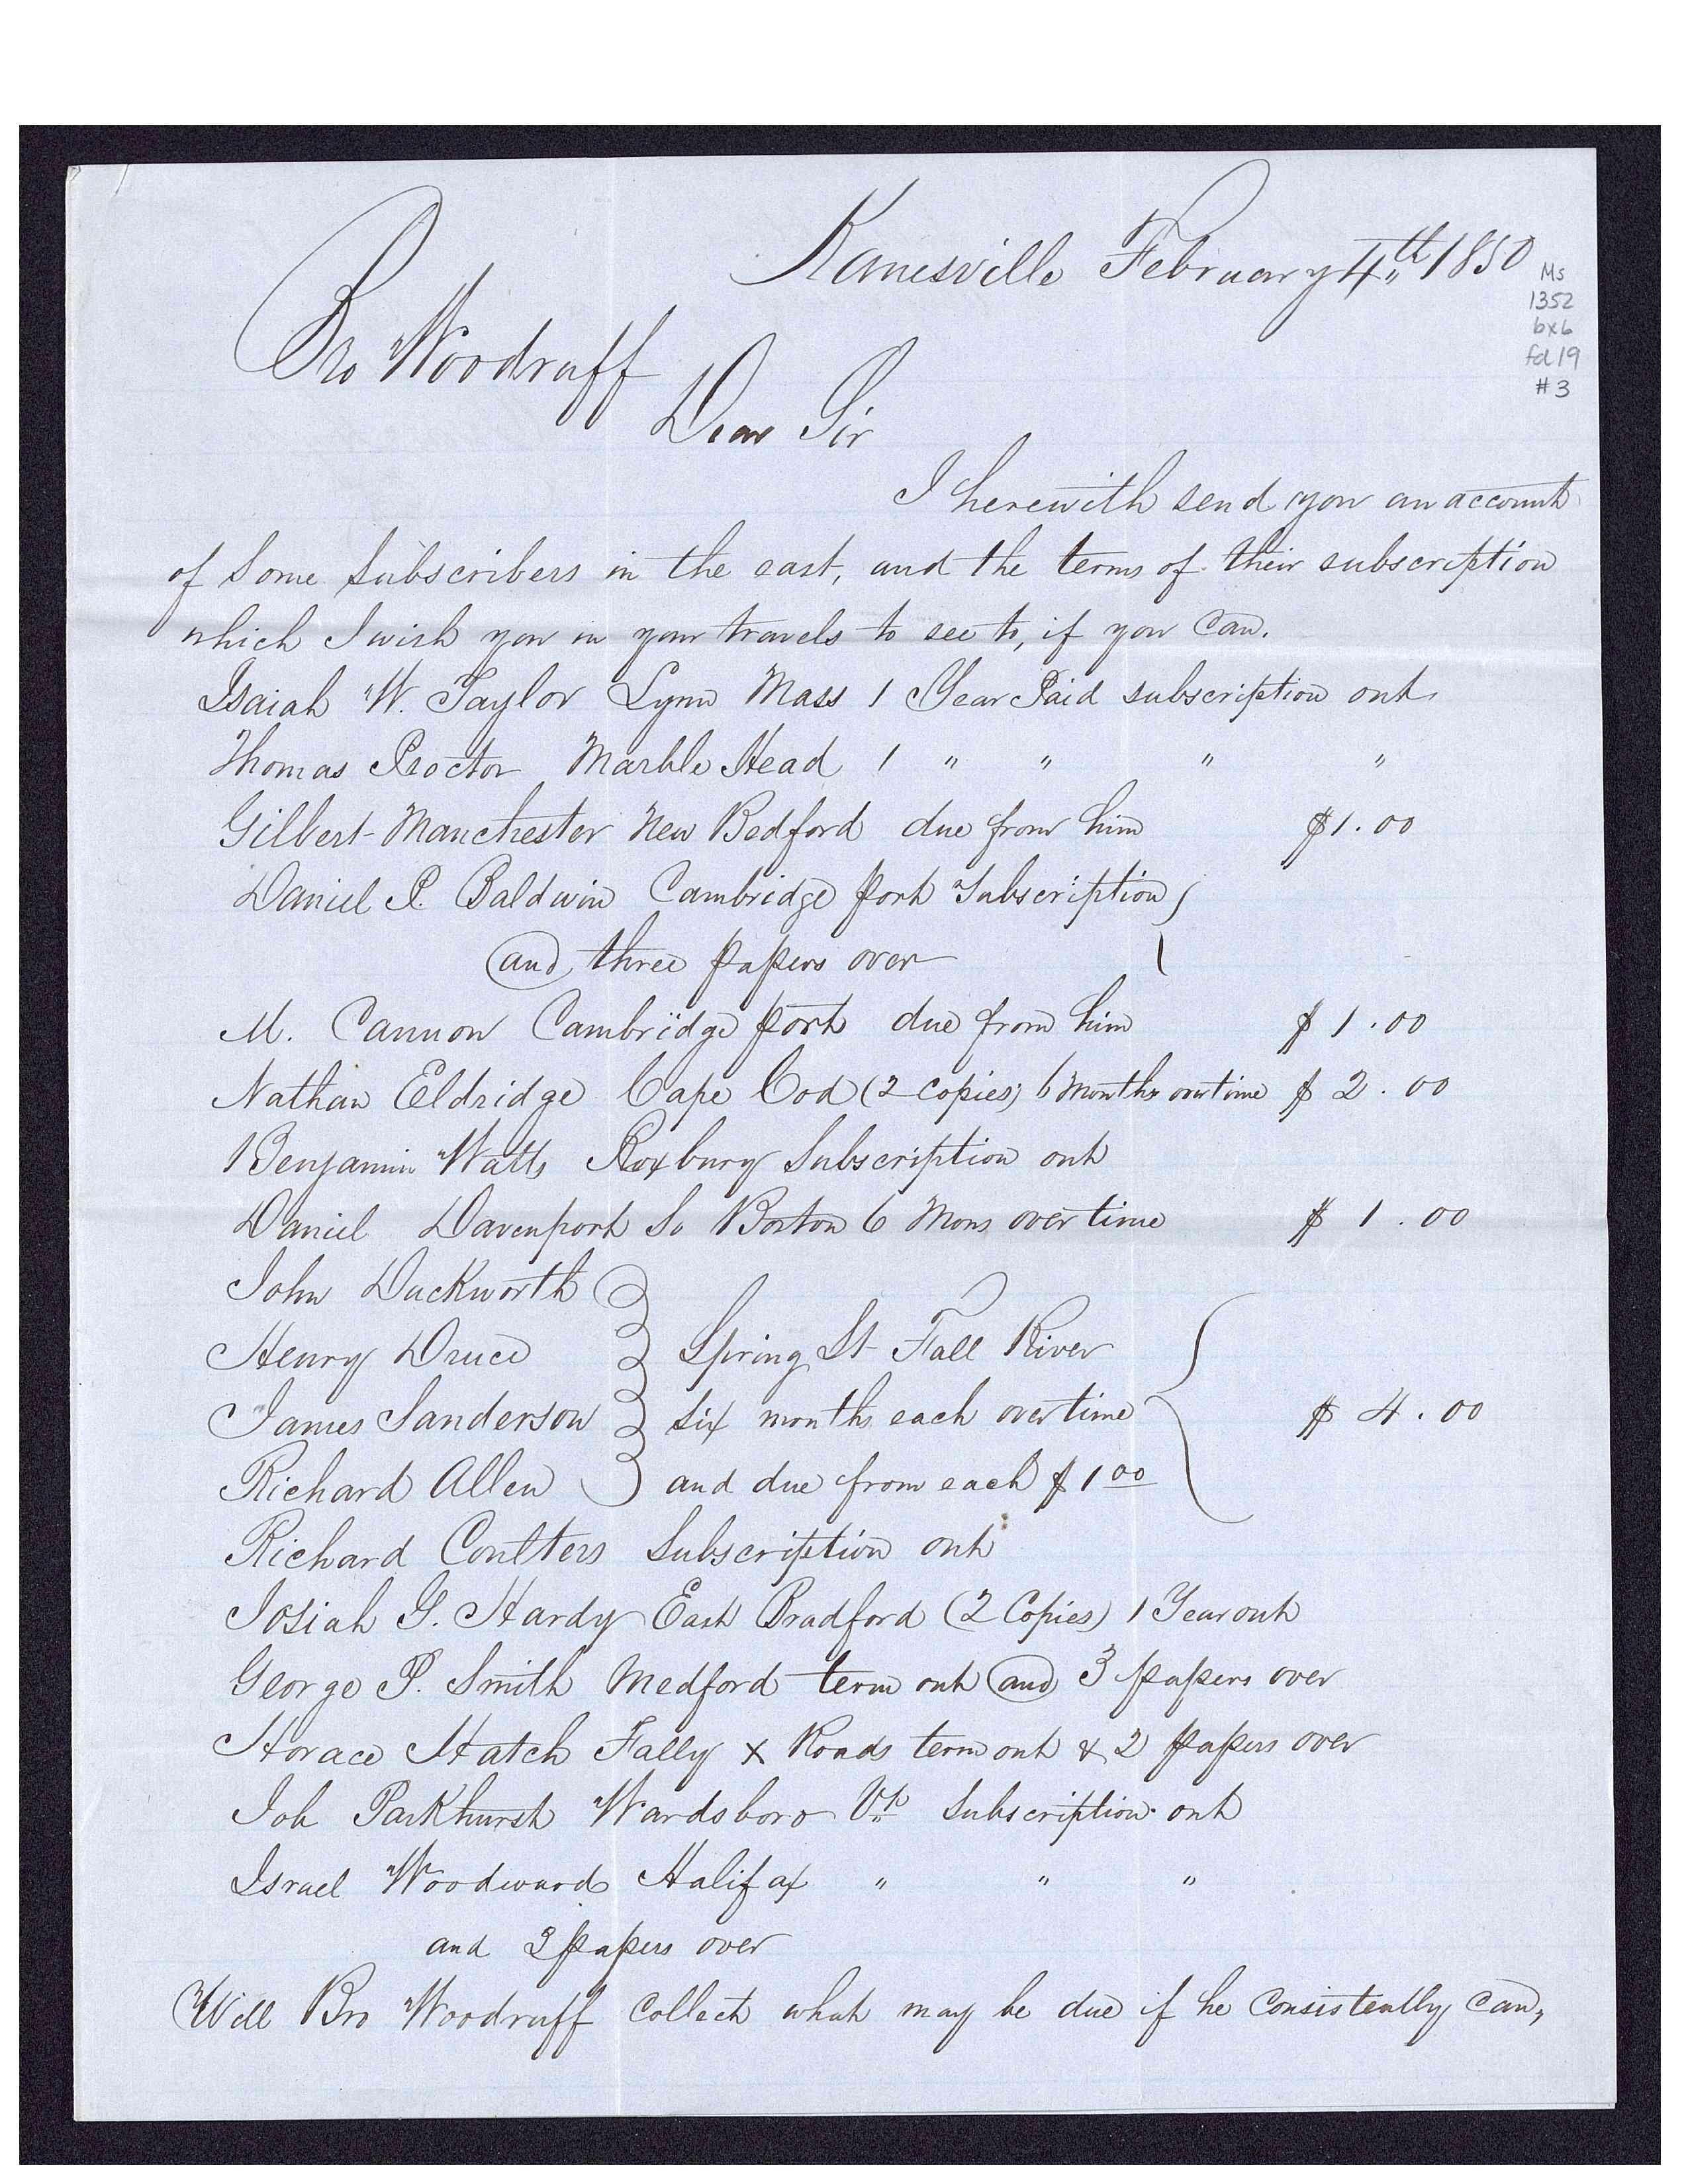 Kanesville February 4th 1850
Ms
1352
bx6
fd 19
#3
Bro Woodruff
Dear Sir
I herewith send you an account
of Some Subscribers in the east, and the terms of their subscription
which I wish you in your travels to see to, if you Can.
Isaiah W. Taylor Lynn Mass 1 Year Paid subscription out
Thomas Proctor Marble Head 1 " " " "
Gilbert Manchester New Bedford due from him $1.00
Daniel P. Baldwin Cambridge port Subscription
and three papers over
M. Cannon Cambridge port due from him $1.00
Nathan Eldridge Cape Cod (2 copies) 6 Months overtime $2.00
Benjamin Watts Roxbury Subscription out
Daniel Davenport So Boston 6 Mons over time $1.00
John Duckworth
Henry Druce Spring St Fall River
James Sanderson six months each over time $4.00
Richard Allen and due from each $1 00
Richard Coulters Subscription out
Josiah G. Hardy East Bradford (2 Copies) 1 Year out
George P. Smith Medford term out and 3 papers over
Horace Hatch Fally X Roads term out & 2 papers over
Job Parkhurst Wardsboro Vt Subscription out
Israel Woodward Halifax " " "
and 3 papers over
Will Bro Woodruff Collect what may be due if he Consistently Can,